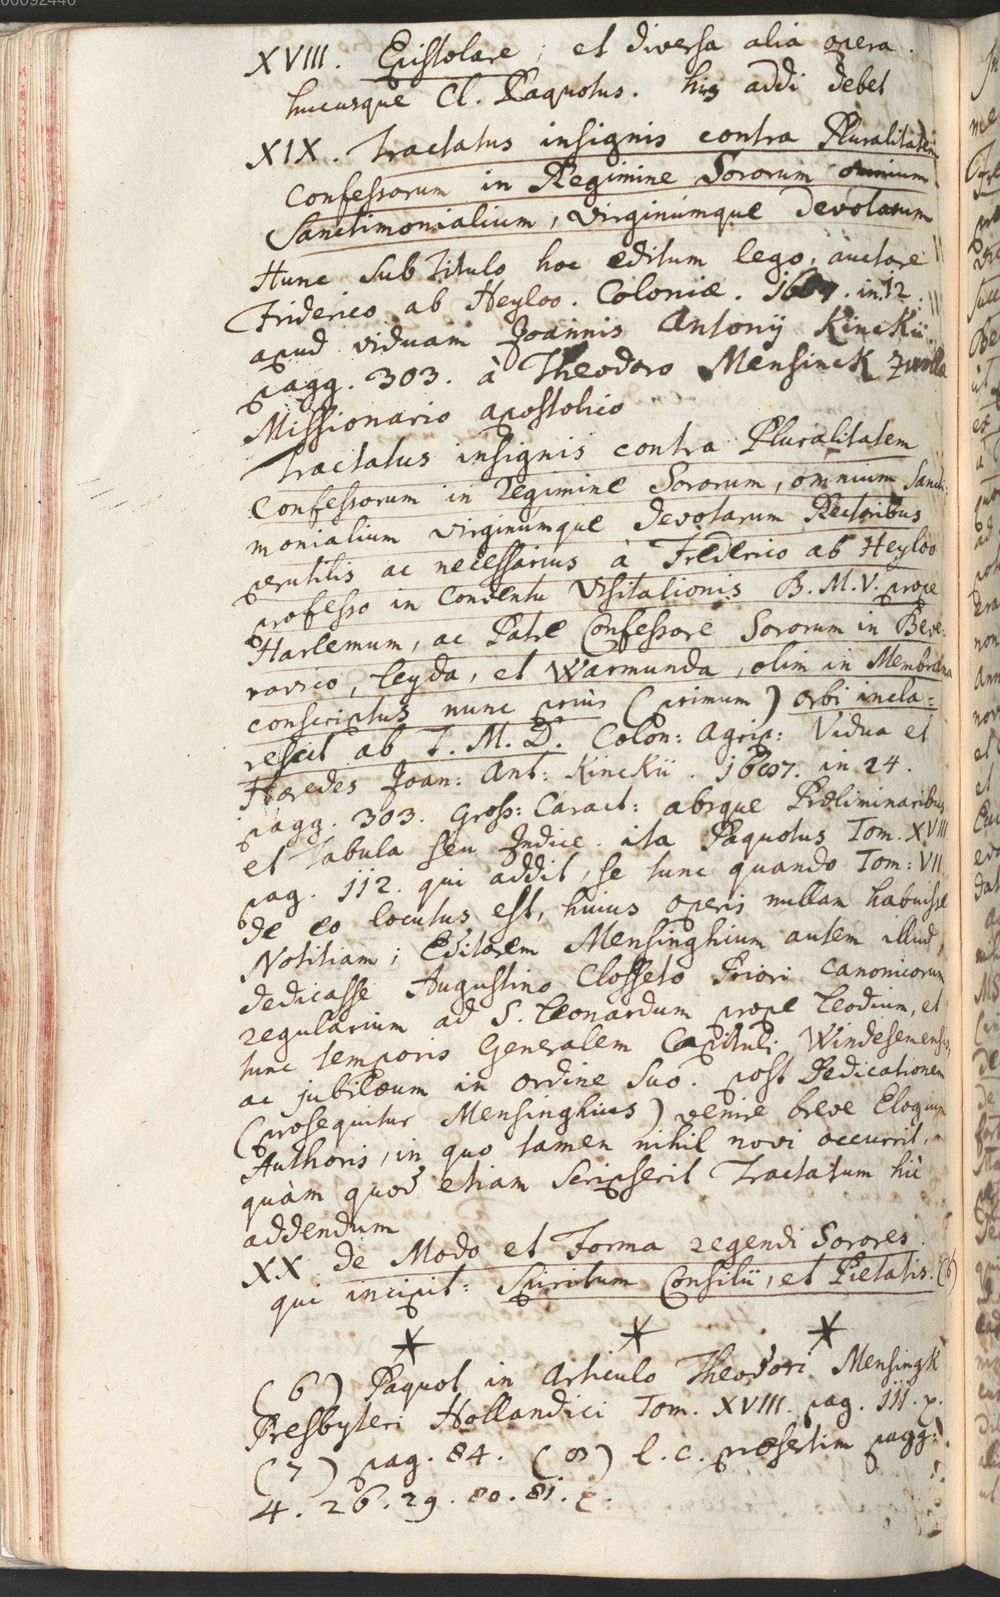 00092440
XVIII. Epistolare; et diversa alia opera.
hucusque Cl. Paquotus. his addi debet
XIX. Tractatus insignis contra Pluralitatem
Confessorum in Regimine Sororum omnium
Sanctimonialium, Virginumque Devotarum
Hunc sub titulo hoc editum lego, auctore
Friderico ab Heyloo. Coloniæ. in 12.
apud viduam Joannis Antonij Kinckii.
pagg. 303. à Theodoro Mensinck Zwollæ
Missionario apostolico
Tractatus insignis contra Pluralitatem
Confessorum in Regimine Sororum, omnium Sancti-
monialium Virginumque Devotarum Rectoribus
perutilis ac necessarius à Frederico ab Heyloo
professo in Conventu Visitationis B. M. V. prope
Harlemum, ac Patre Confessore Sororum in Beve-
rovico, Leyda, et Warmunda, olim in Membrana
conscriptus nunc prius (primum) orbi incla=
rescit ab T. M. D. Colon: Agrip: Vidua et
Hæredes Joan: Ant: Kinckii. in 24.
pagg. 303. Gross: Caract: absque Præliminaribus
et Tabula seu Indice. ita Paquotus Tom. XVIII
pag. 112. qui addit, se tunc quando Tom: VII
de eo locutus est, huius operis nullam habuisse
Notitiam; Editorem Mensinghium autem illud
dedicasse Augustino Closseto Priori Canonicorum
regularium ad S. Leonardum prope Leodium, et
tunc temporis Generalem Capituli Windesemensis,
ac jubilæum in ordine suo. post Dedicationem
(prosequitur Mensinghius) venire breve Elogium
Authoris, in quo tamen nihil novi occurrit,
quàm quod etiam scripserit Tractatum hic
addendum
XX De Modo et Forma regendi Sorores.
qui incipit: Spiritum Consilii, et Pietatis. (6)
* * *
(6) Paquot in Articulo Theodori Mensingk
Presbyteri Hollandici Tom. XVIII. pag. 111. p.
(7) pag. 84. (8) l. c. præsertim pagg:
4. 26. 29. 80. 81.